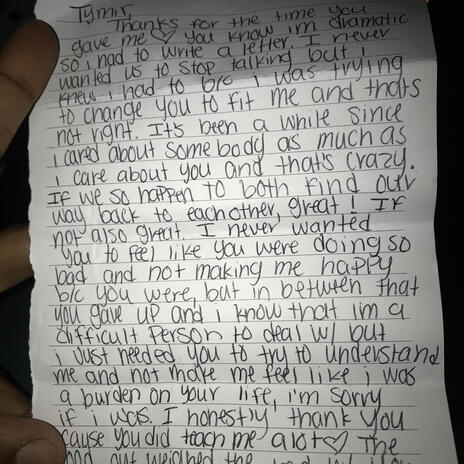 Tymir,
Thanks for the time you
gave me♡ you know im dramatic
so i had to write a letter. I never
wanted us to stop talking but i
knew i had to b/c i was trying
to change you to fit me and thats
not right. It's been a while since
i cared about somebody as much as
i care about you and that's crazy.
If we so happen to both find our
way back to eachother, great! If
not also great. I never wanted
you to feel like you were doing so
bad and not making me happy
b/c you were, but in between that
you gave up and i know that im a
difficult person to deal w/ but
i just needed you to try to understand
me and not make me feel like i was
a burden on your life, i'm sorry
if i was. I honestly thank you
cause you did teach me alot♡ The
good out weighed the